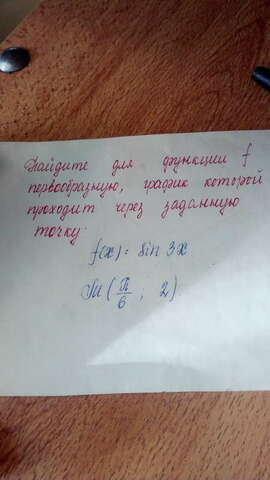 Найдите для функции f
первообразную, график которой
проходит через заданную
точку:
f(x) = sin 3x
M (π/6 ; 2)